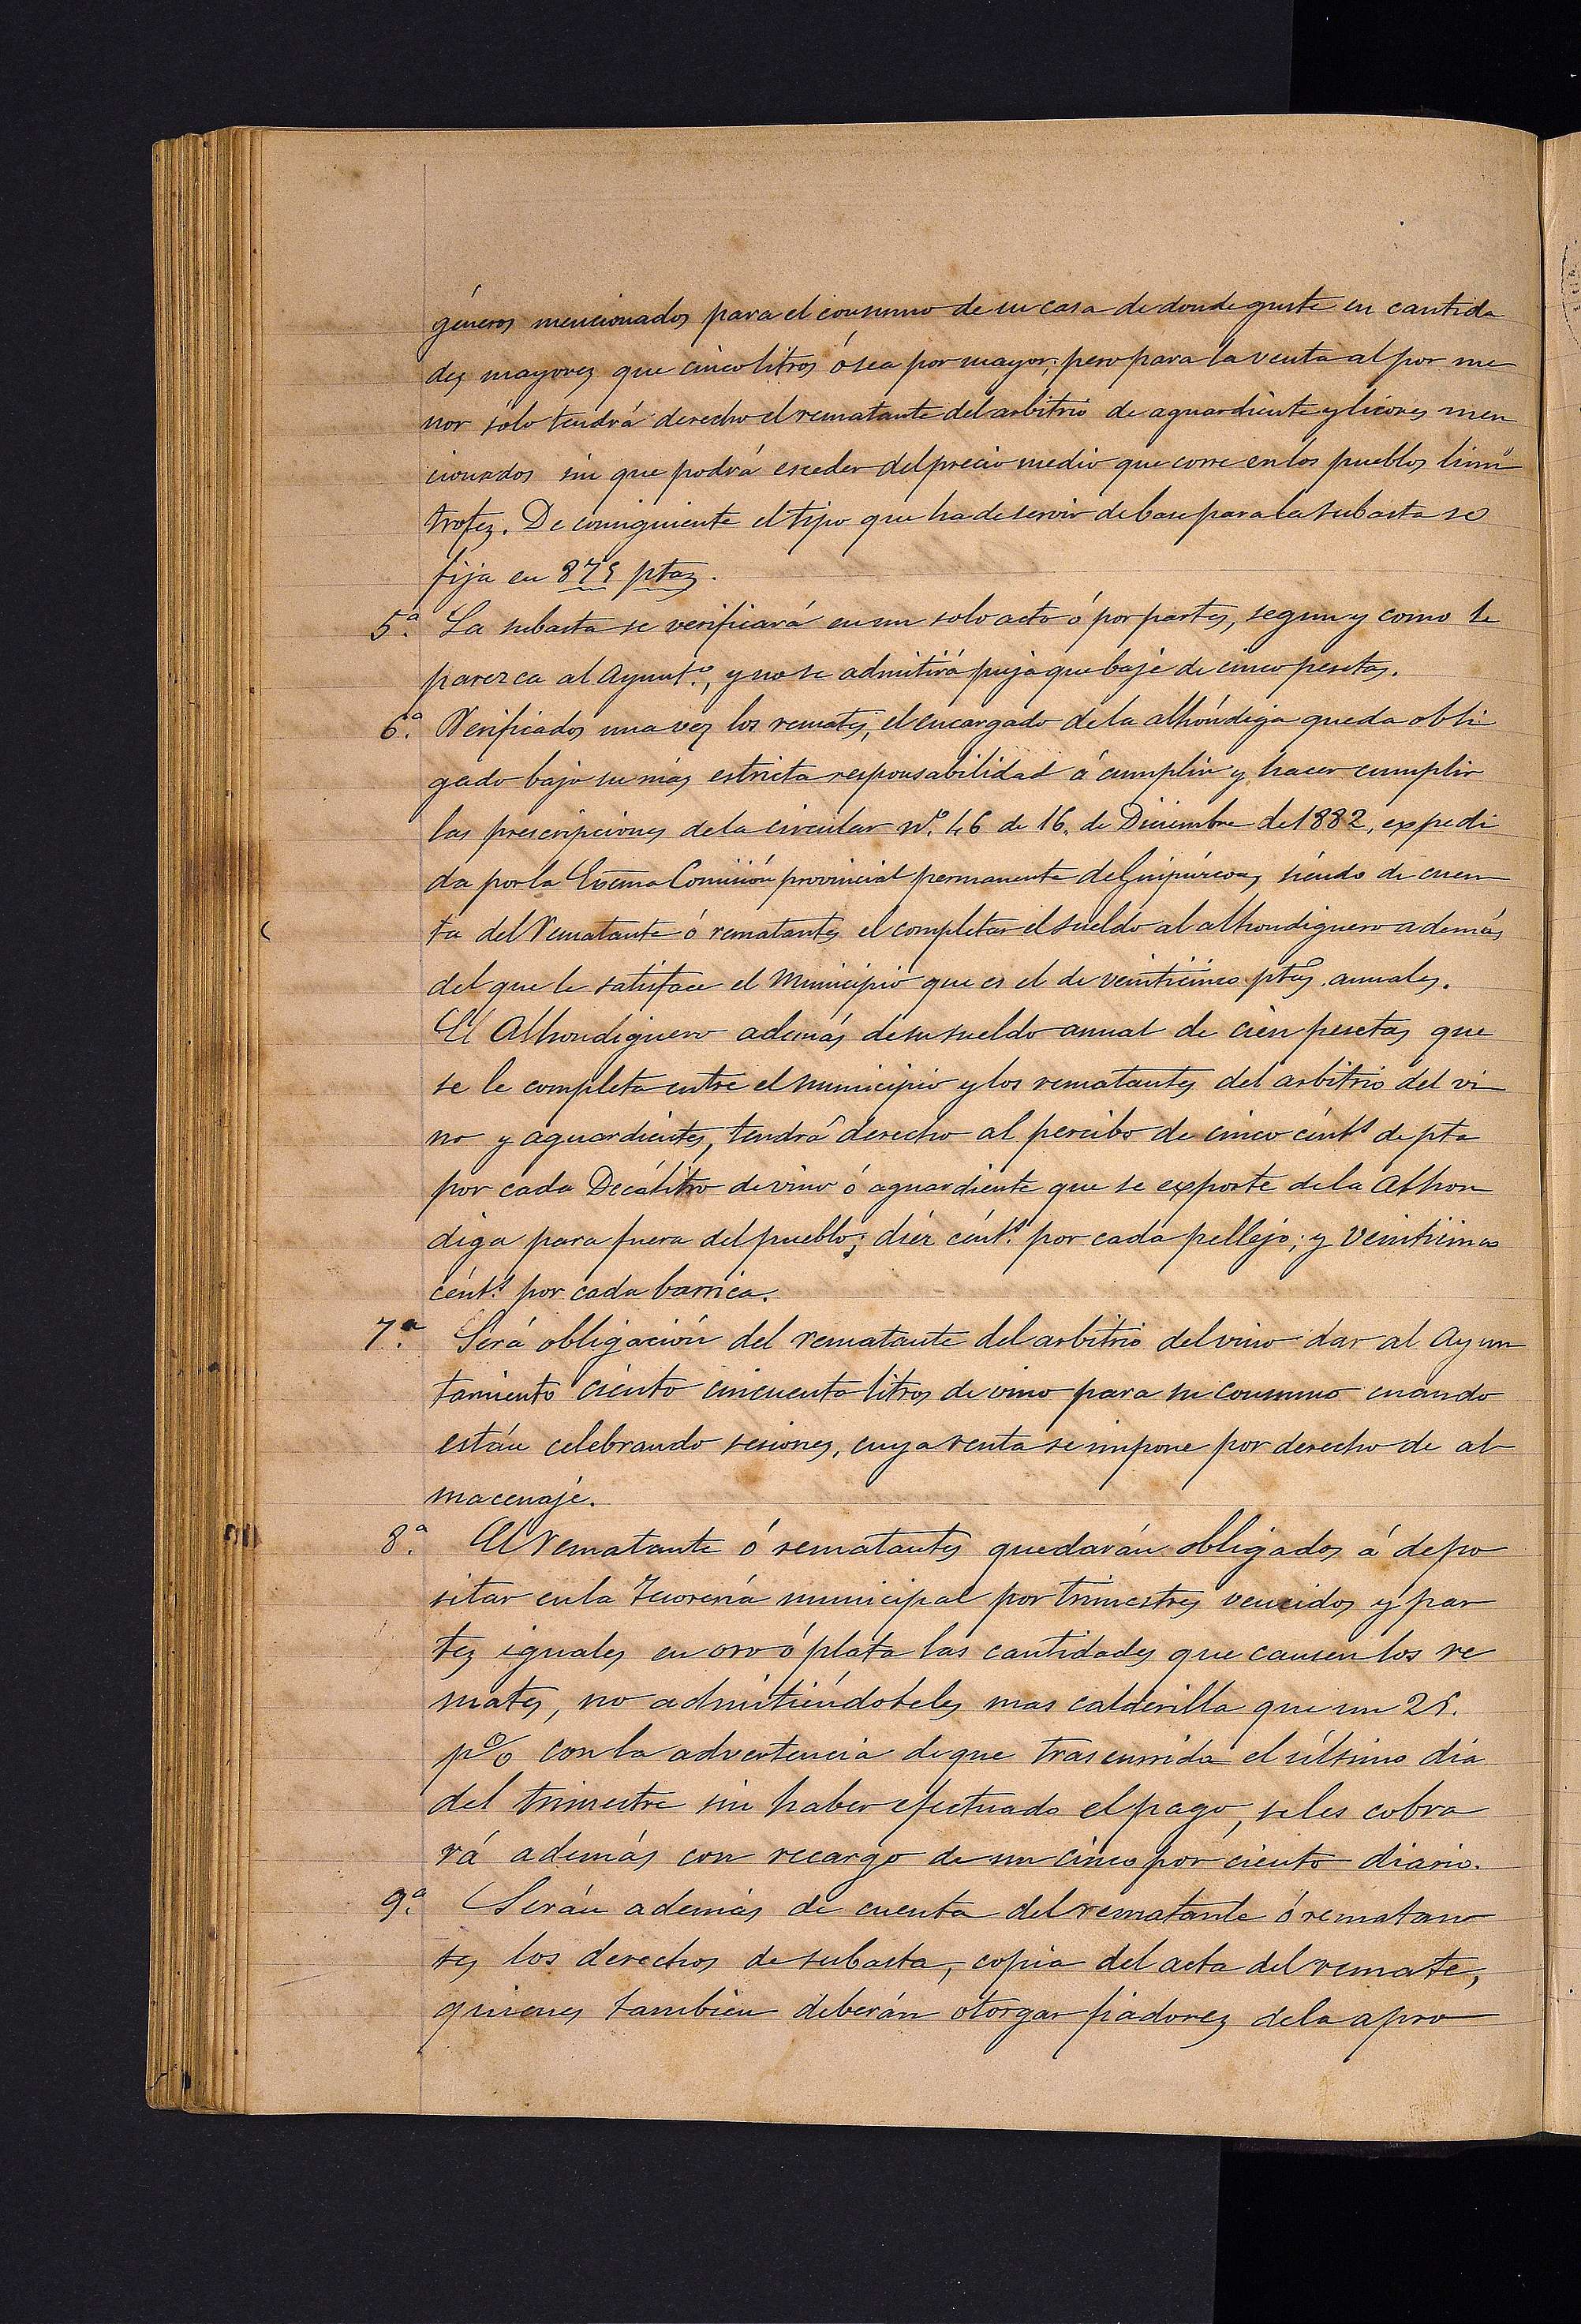 géneros mencionados para el consumo de su casa de donde guste en cantida
des mayores que cinco litros ó sea por mayor; pero para la venta al por me
nor sólo tendrá derecho el rematante del arbitrio de aguardiente y licores men
cionados sin que podrá esceder del precio medio que corre en los pueblos limí
trofes. De consiguiente el tipo que ha de servir de base para la subasta se
fija en 875 ptas.
5.ª La subasta se verificará en un solo acto ó por partes, segun y como le
parezca al Ayunt.º, y no se admitirá puja que baje de cinco pesetas.
6.ª Verificados una vez los remates, el encargado de la alhóndiga queda obli
gado bajo su más estricta responsabilidad á cumplir y hacer cumplir
las prescripciones de la circular N.º 46 de 16. de Diciembre de 1882, expedi
da por la Excma Comisión provincial permanente de Guipúzcoa, siendo de cuen
ta del Rematante ó rematantes el completar el sueldo al alhondiguero además
del que le satisface el Municipio que es el de veinticinco ptas. anuales.
El Alhondiguero además de su sueldo anual de cien pesetas que
se le completa entre el municipio y los rematantes del arbitrio del vi
no y aguardientes, tendrá derecho al percibo de cinco cénts de pta
por cada Decálitro de vino ó aguardiente que se exporte de la Alhon
diga para fuera del pueblo; diéz cénts. por cada pellejo; y veinticinco
cénts. por cada barrica.
7.ª Será obligación del rematante del arbitrio del vino dar al Ayun
tamiento ciento cincuenta litros de vino para su consumo cuando
están celebrando sesiones, cuya renta se impone por derecho de al
macenaje.
8.ª El Rematante ó rematantes quedarán obligados á depo
sitar en la Tesorería municipal por trimestres vencidos y par
tes iguales en oro ó plata las cantidades que causen los re
mates, no admitiéndoseles mas calderilla que un 25.
p% con la advertencia de que trascurrida el último dia
del trimestre sin haber efectuado el pago, se les cobra
rá además con recargo de un cinco por ciento diario.
9.ª Serán además de cuenta del rematante ó rematan
tes los derechos de subasta, copia del acta del remate,
quienes tambien deberán otorgar fiadores de la apro